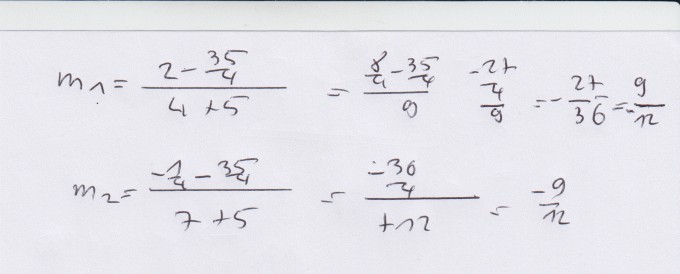 m₁ = (2 - 35/4)/(4 + 5) = (8/4 - 35/4)/9 (-27/4)/9 = -27/36 = -9/12
m₂ = (-1/4 - 35/4)/(7 + 5) = (-36/4)/(+12) = -9/12